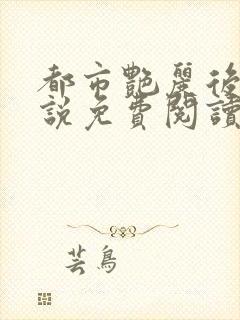 都市艷麗後
說免費閱讀
芸鳥